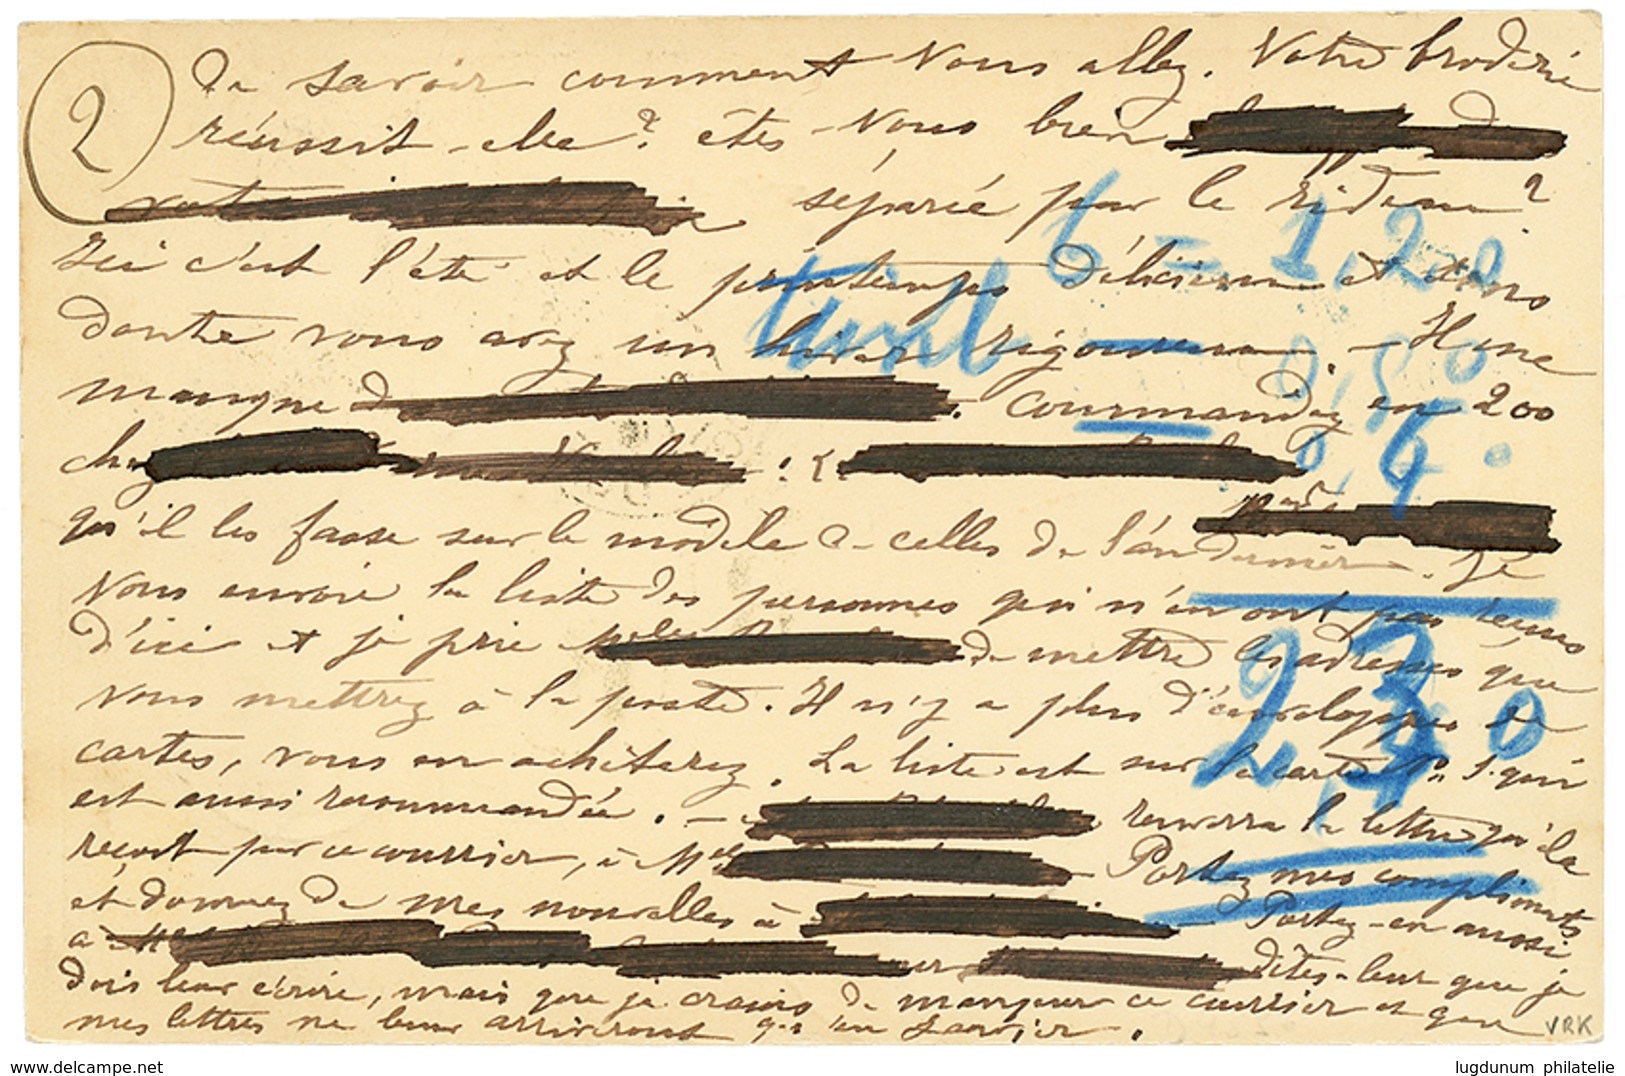 2
de savoir comment vous allez. Votre broderie
réussit-elle? êtes-vous bien
séparée par le rideau?
Ici c'est l'été et le printemps délicieux et sans
doute vous avez un hiver rigoureux. - Il me
manque d . Commandez en 200
chez
qu'il les fasse sur le modèle de celles de l'an dernier. Je
vous envoie la liste des personnes qui n'en ont pas reçues
d'ici et je prie de mettre les adresses que
vous mettrez à la poste. Il n'y a plus d'enveloppes de
cartes, vous en achèterez. La liste est sur la carte No 1 qui
est aussi recommandée. - renverra la lettre qu'il a
reçoit par ce courrier, à Mlle Portez mes compliments
et donnez de mes nouvelles à Portez-en aussi
à Dites-leur que je
dois leur écrire, mais que je crains de manquer ce courrier et que
mes lettres ne leur arriveront qu'en Janvier.
VRK
6 - 1,20
0,50
23
delcampe.net
lugdunum philatelie